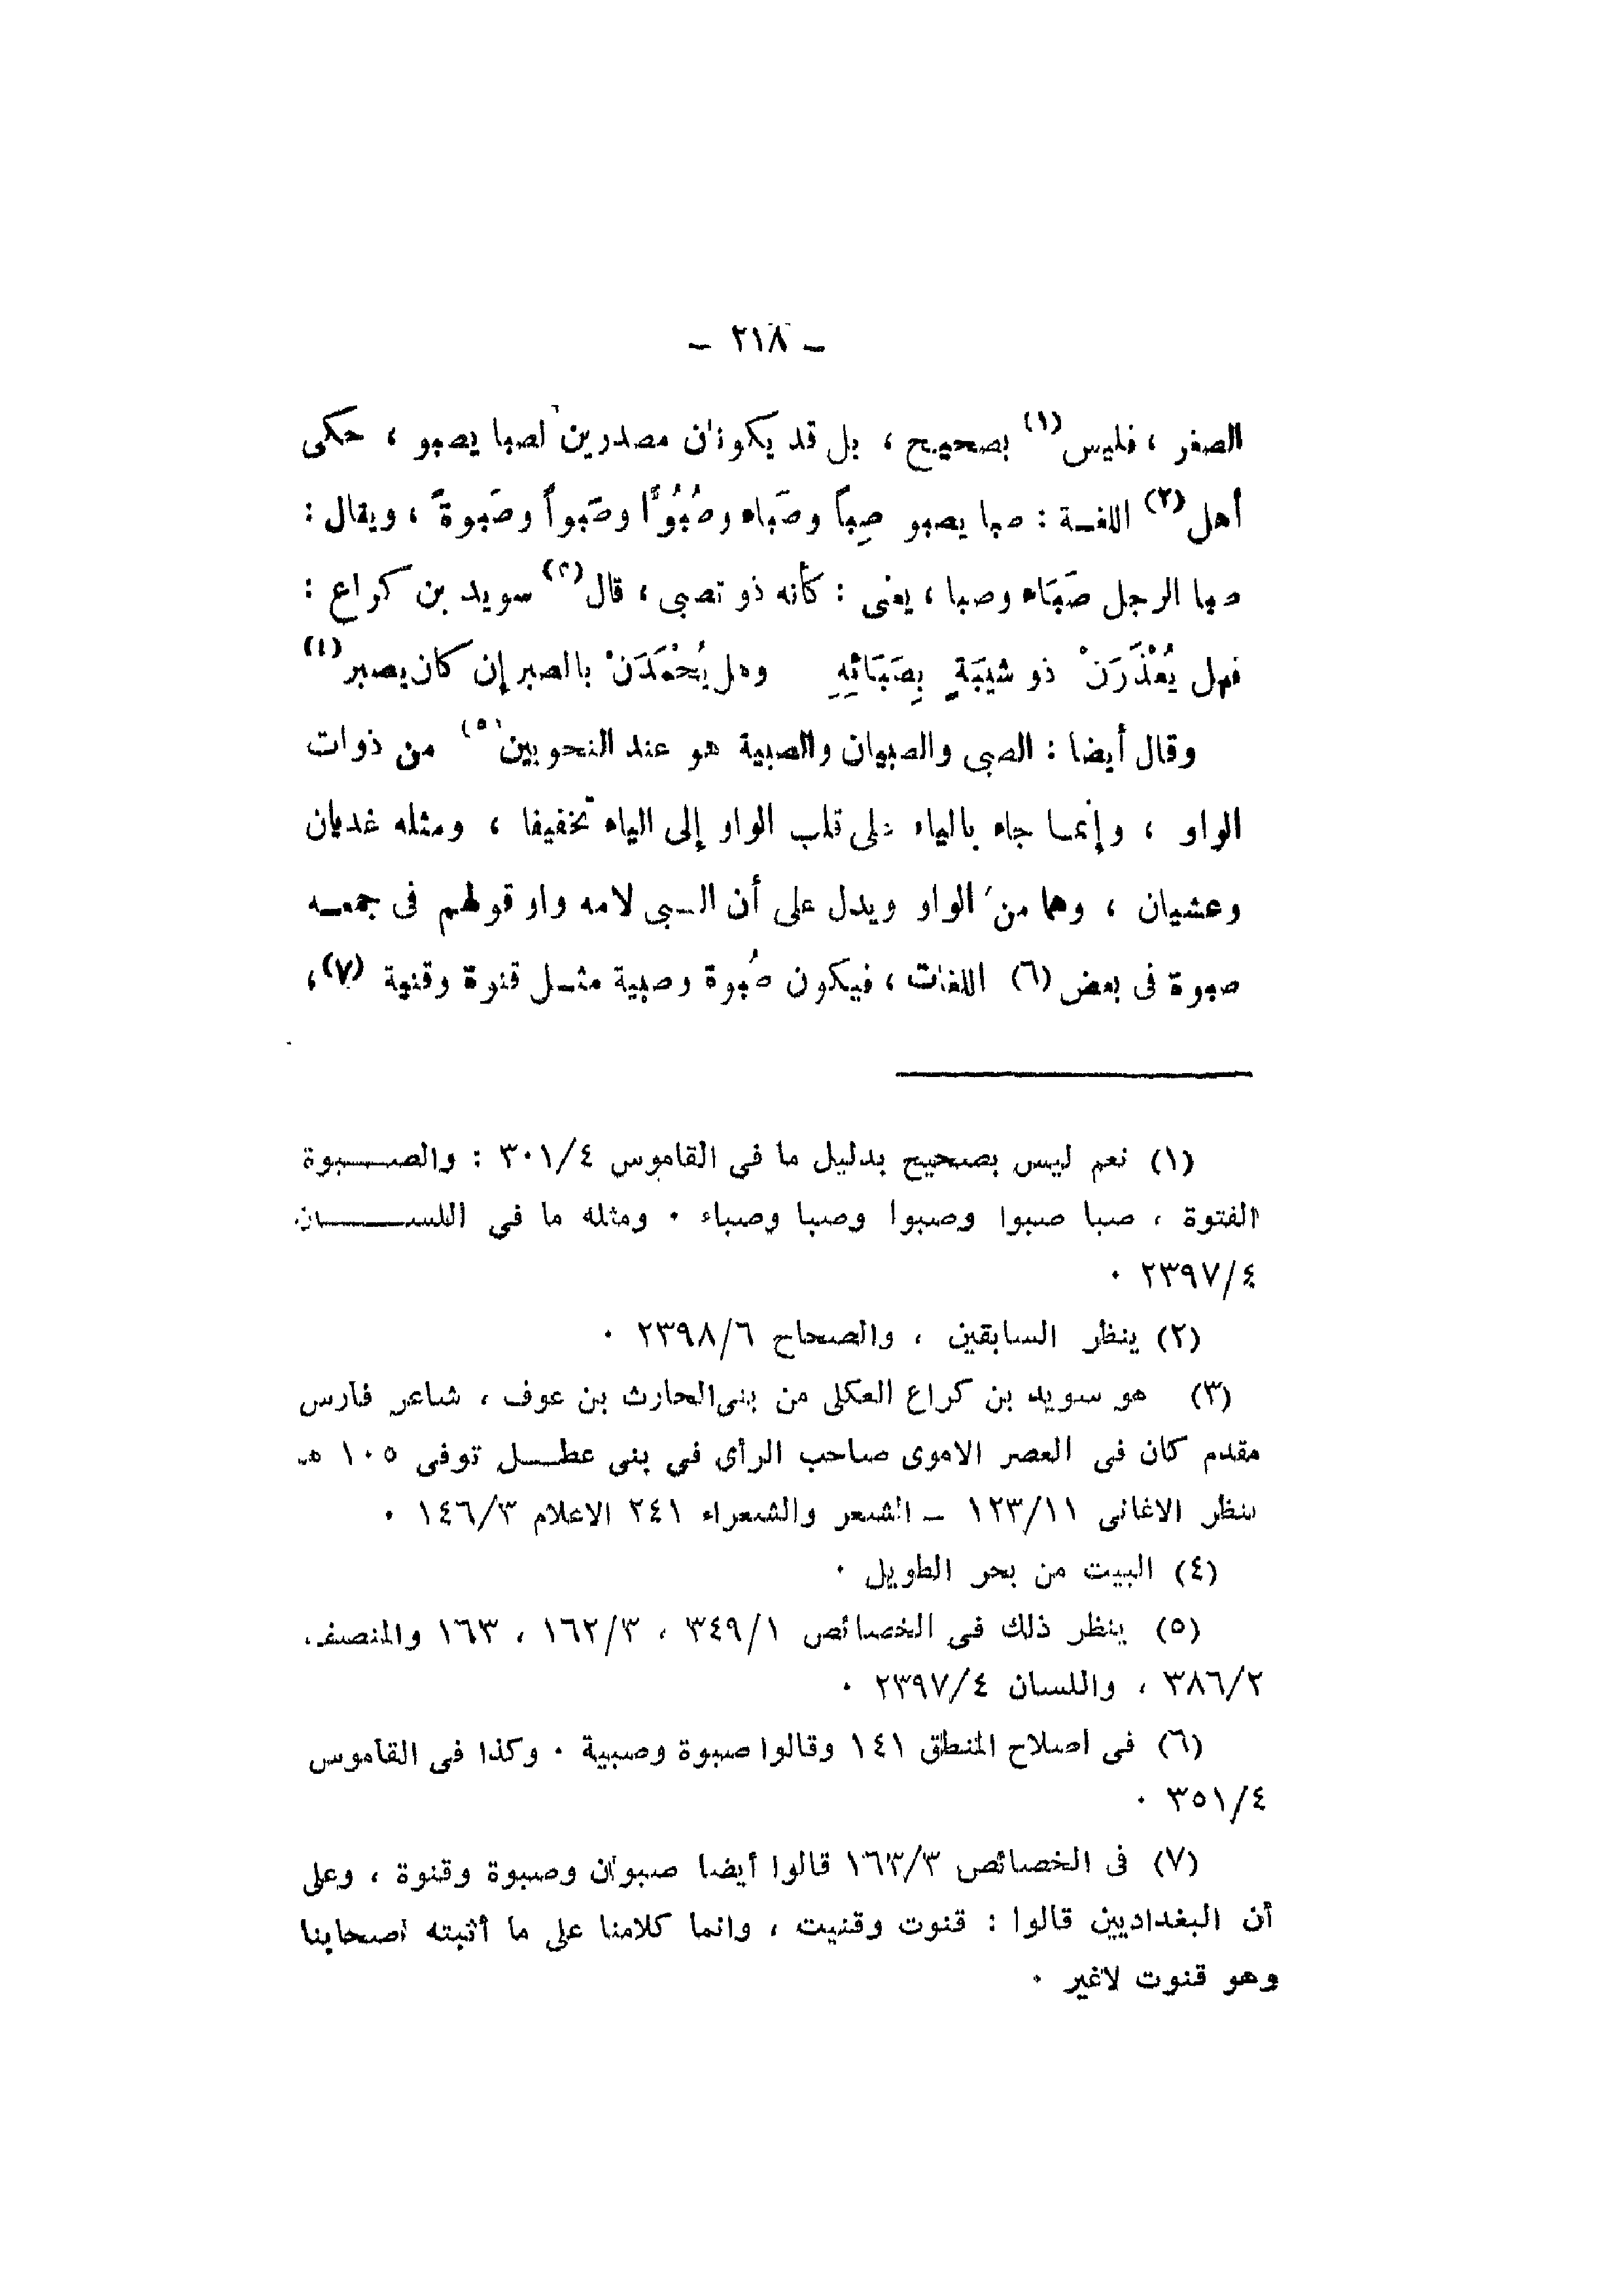 - ٢١٨ -
الصغر ، فليس(١) بصحيح ، بل قد يكونان مصدرين لصبا يصبو ، حكى
أهل(٢) اللغـة : صبا يصبو صِباً وصَباء وصُبُوًّا وصَبواً وصَبوةً ، ويقال :
صبا الرجل صَبَاء وصبا ، يعنى : كأنه ذو تصبى ، قال(٣) سويد بن كراع :
فهل يُعْذَرَنْ ذو شيبَةٍ بِصَبَائِهِ وهل يُحْمَدَنْ بالصبر إن كان يصبر(٤)
وقال أيضا : الصبى والصبيان والصبية هو عند النحويين(٥) من ذوات
الواو ، وإنمـا جاء بالياء على قلب الواو إلى الياء تخفيفا ، ومثله غديان
وعشيان ، وهما من الواو ويدل على أن الصبى لامه واو قولهم فى جمعـه
صبوة فى بعض (٦) اللغات ، فيكون صُبوة وصبية مثـل قنوة وقنية (٧) ،
(١) نعم ليس بصحيح بدليل ما فى القاموس ٣٠١/٤ : والصــبوة
الفتوة ، صبا صبوا وصبوا وصبا وصباء ٠ ومثله ما فى اللســـان
٢٣٩٧/٤ ٠
(٢) ينظر السابقين ، والصحاح ٢٣٩٨/٦ ٠
(٣) هو سويد بن كراع العكلى من بنى الحارث بن عوف ، شاعر فارس
مقدم كان فى العصر الاموى صاحب الرأى فى بنى عطــل توفى ١٠٥ هـ
ينظر الاغانى ١٢٣/١١ ـ الشعر والشعراء ٢٤١ الاعلام ١٤٦/٣ ٠
(٤) البيت من بحر الطويل ٠
(٥) ينظر ذلك فى الخصائص ٣٤٩/١ ، ١٦٢/٣ ، ١٦٣ والمنصف
٣٨٦/٢ ، واللسان ٢٣٩٧/٤ ٠
(٦) فى اصلاح المنطق ١٤١ وقالوا صبوة وصبية ٠ وكذا فى القاموس
٣٥١/٤ ٠
(٧) فى الخصائص ١٦٣/٣ قالوا أيضا صبوان وصبوة وقنوة ، وعلى
أن البغداديين قالوا : قنوت وقنيت ، وانما كلامنا على ما أثبته اصحابنا
وهو قنوت لاغير ٠